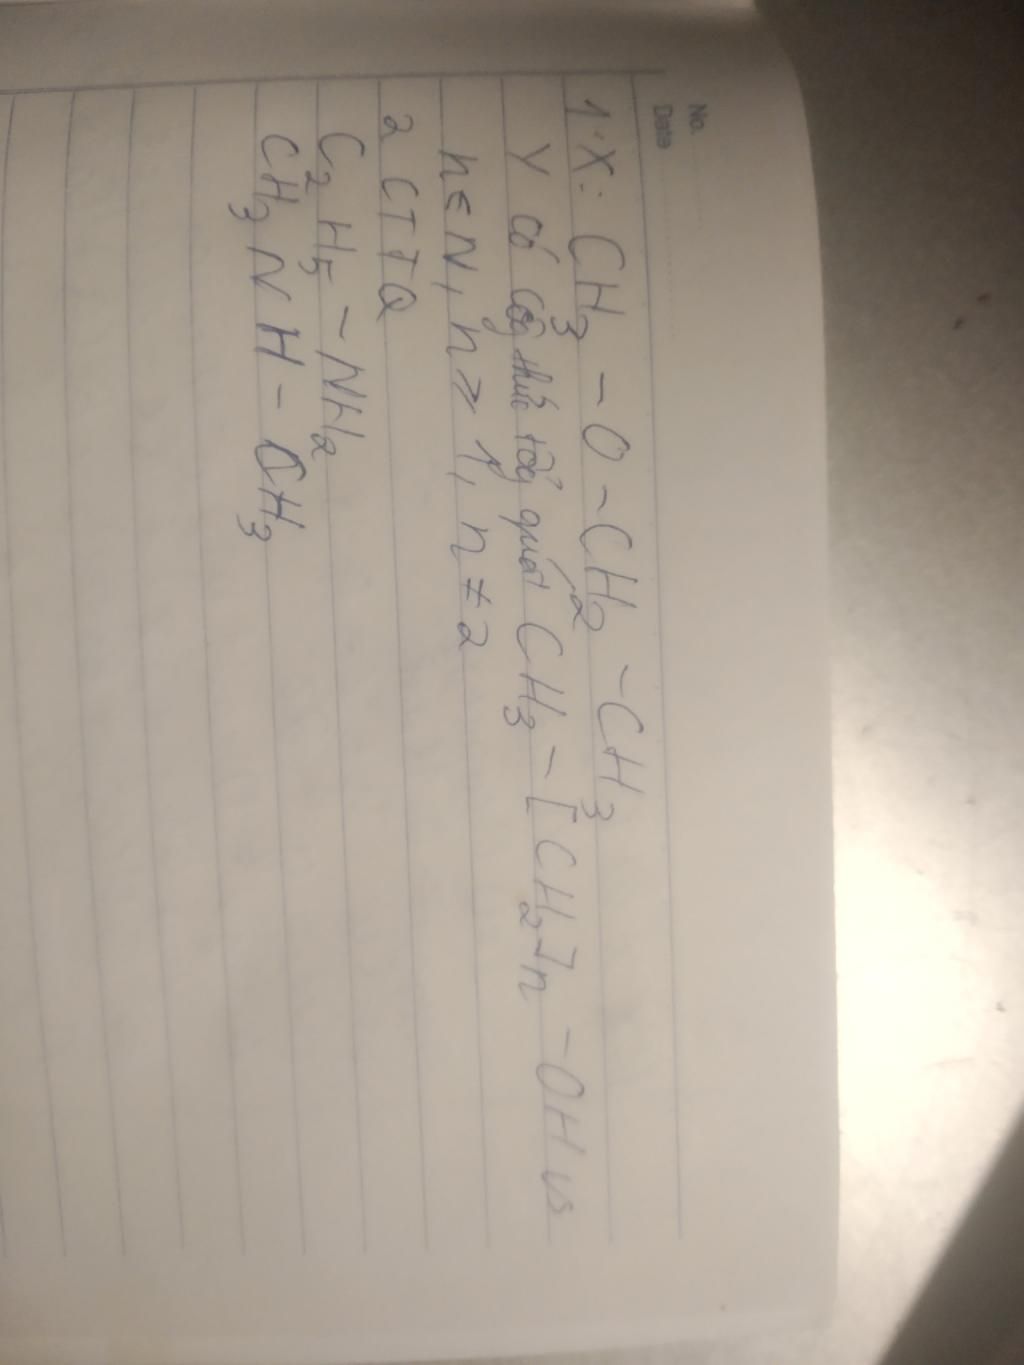 No.
Date
1. X: CH3 - O - CH2 - CH3
Y có công thức tổng quát CH3 - [CH2]n - OH vs
n ∈ N, n ≥ 1, n ≠ 2
2 CTTQ
C2H5 - NH2
CH3NH - CH3